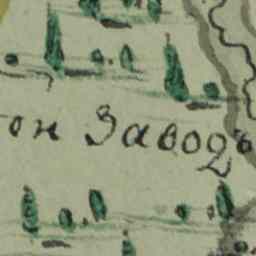 он Заводъ